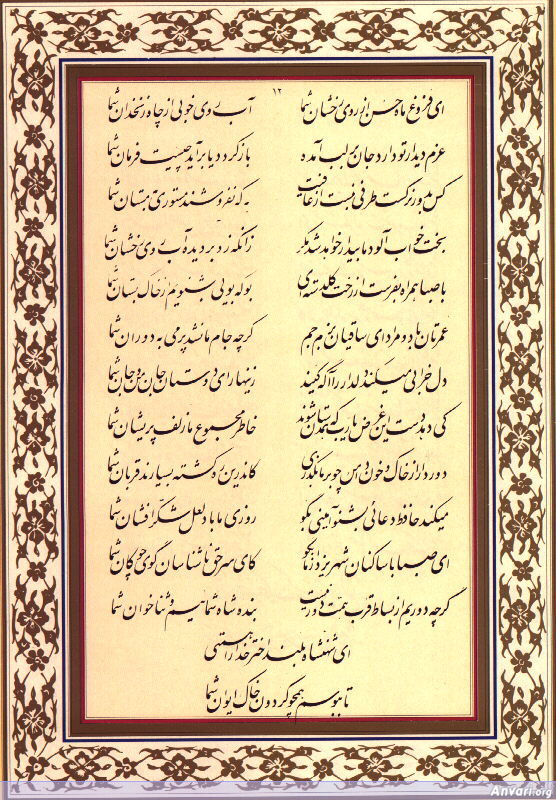 ۱۲
ای فروغ ماه حسن از روی رخشان شما آب روی خوبی از چاه زنخدان شما
عزم دیدار تو دارد جان بر لب آمده بازگردد یا برآید چیست فرمان شما
کس بدور نرگست طرفی نبست از عافیت به که نفروشند مستوری بمستان شما
بخت خواب آلود ما بیدار خواهد شد مگر زانکه زد بر دیده آب روی رخشان شما
با صبا همراه بفرست از رخت گلدسته‌ی بو که بویی بشنویم از خاک بستان شما
عمرتان باد و مراد ای ساقیان بزم جم گرچه جام ما نشد پر می به دوران شما
دل خرابی میکند دلدار را آگه کنید زینهار ای دوستان جان من و جان شما
کی دهد دست این غرض یا رب که همدستان شوند خاطر مجموع ما زلف پریشان شما
دور دار از خاک و خون دامن چو بر ما بگذری کاندرین ره کشته بسیارند قربان شما
میکند حافظ دعائی بشنو آمینی بگو روزی ما باد لعل شکرافشان شما
ای صبا با ساکنان شهر یزد از ما بگو کای سر حق ناشناسان گوی چوگان شما
گرچه دوریم از بساط قرب همت دور نیست بنده شاه شماییم و ثناخوان شما
ای شهنشاه بلند اختر خدا را همتی
تا ببوسم همچو گردون خاک ایوان شما
Anvari.org